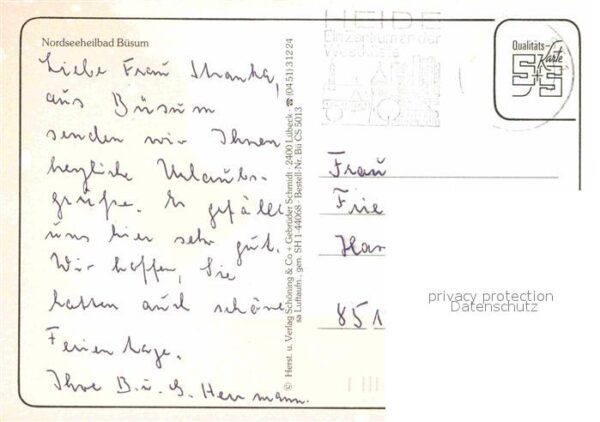 Nordseeheilbad Büsum
Liebe Frau Stranka,
aus Büsum
senden wir Ihnen
herzliche Urlaubs-
grüße. Es gefällt
uns hier sehr gut.
Wir hoffen, Sie
hatten auch schöne
Ferientage.
Ihre B. u. G. Herrmann.
© Herst. u. Verlag Schöning & Co + Gebrüder Schmidt · 2400 Lübeck · ☎ (04 51) 3 12 24
sa Luftaufn., gen. SH 1-44068 · Bestell-Nr. Bü CS 5013
HEIDE
Einzentrum der
Westküste
Qualitäts-
Karte
S+S
Frau
Frie
Han
851
privacy protection
Datenschutz